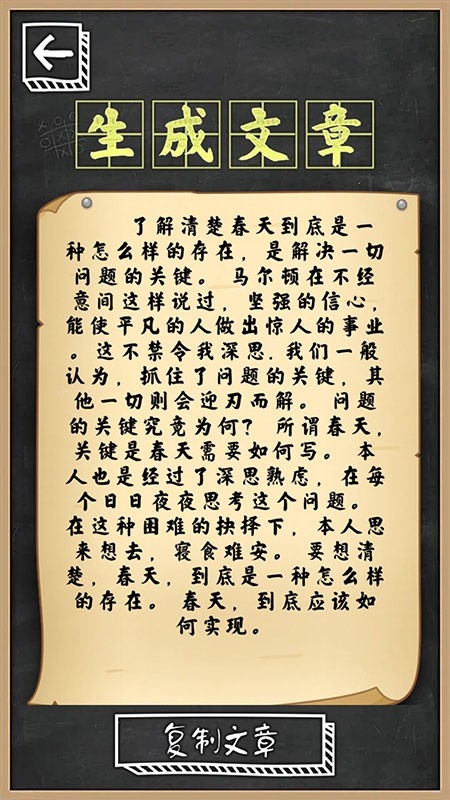 生成文章
了解清楚春天到底是一
种怎么样的存在，是解决一切
问题的关键。 马尔顿在不经
意间这样说过，坚强的信心，
能使平凡的人做出惊人的事业
。这不禁令我深思.我们一般
认为，抓住了问题的关键，其
他一切则会迎刃而解。 问题
的关键究竟为何？ 所谓春天，
关键是春天需要如何写。 本
人也是经过了深思熟虑，在每
个日日夜夜思考这个问题。
在这种困难的抉择下，本人思
来想去，寝食难安。 要想清
楚，春天，到底是一种怎么样
的存在。 春天，到底应该如
何实现。
复制文章